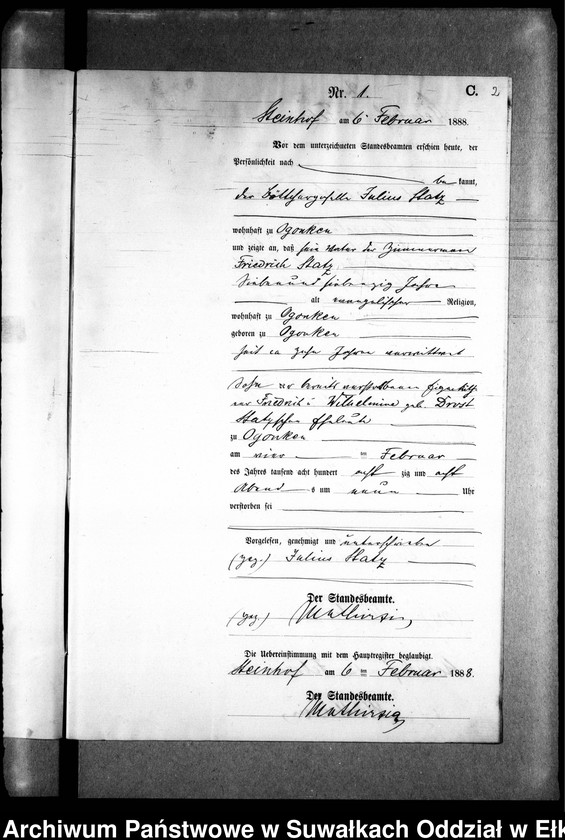 Nr. 1. C. 2
Steinhof am 6 Februar 1888.
Vor dem unterzeichneten Standesbeamten erschien heute, der
Persönlichkeit nach
be kannt,
der Böttchergeselle Julius Statz
wohnhaft zu Ogonken
und zeigte an, daß sein Vater der Zimmermann
Friedrich Statz,
Siebenund siebenzig Jahre
alt evangelischer Religion,
wohnhaft zu Ogonken
geboren zu Ogonken
seit ca zehn Jahren verwittwet
Sohn der bereits verstorbenen
Friedrich u Wilhelmine geb. Drost
Statzschen Eheleute
zu Ogonken
am vier ten Februar
des Jahres tausend acht hundert acht zig und acht
Abend s um neun Uhr
verstorben sei
Vorgelesen, genehmigt und unterschrieben
(gez.) Julius Statz
Der Standesbeamte.
(gez.)
Die Uebereinstimmung mit dem Hauptregister beglaubigt.
Steinhof am 6 ten Februar 1888.
Der Standesbeamte.
Archiwum Państwowe w Suwałkach Oddział w Ełk